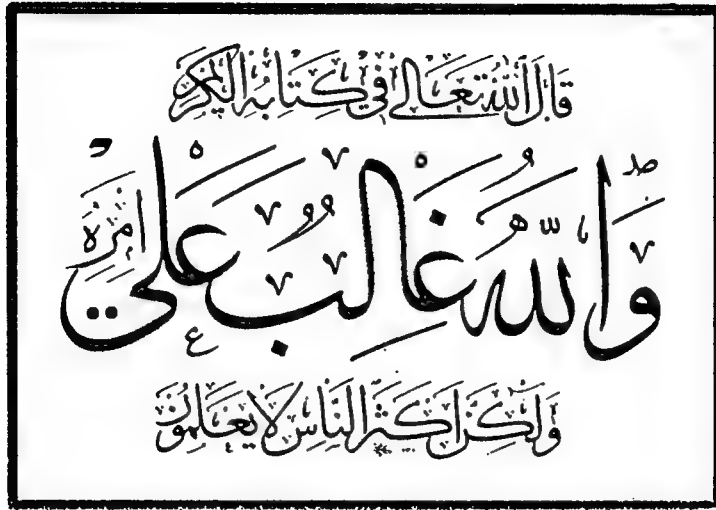 قَالَ اللهُ تَعَالَى فِي كِتَابِهِ الْكَرِيمِ
وَاللهُ غَالِبٌ عَلَى أَمْرِهِ
وَلَكِنَّ أَكْثَرَ النَّاسِ لَا يَعْلَمُونَ